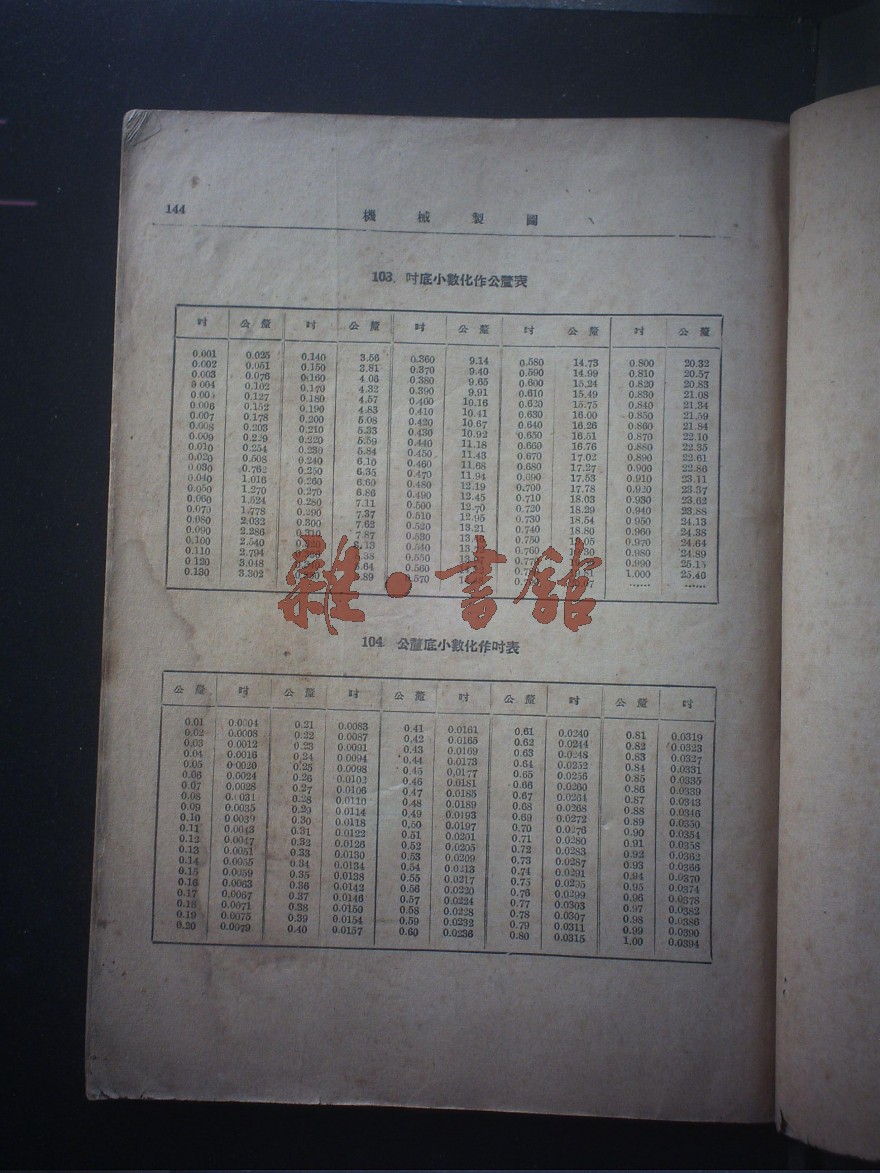 144
機械製圖
103. 吋底小數化作公釐表
吋 公釐 吋 公釐 吋 公釐 吋 公釐 吋 公釐
0.001 0.025 0.140 3.56 0.360 9.14 0.580 14.73 0.800 20.32
0.002 0.051 0.150 3.81 0.370 9.40 0.590 14.99 0.810 20.57
0.003 0.076 0.160 4.06 0.380 9.65 0.600 15.24 0.820 20.83
0.004 0.102 0.170 4.32 0.390 9.91 0.610 15.49 0.830 21.08
0.005 0.127 0.180 4.57 0.400 10.16 0.620 15.75 0.840 21.34
0.006 0.152 0.190 4.83 0.410 10.41 0.630 16.00 0.850 21.59
0.007 0.178 0.200 5.08 0.420 10.67 0.640 16.26 0.860 21.84
0.008 0.203 0.210 5.33 0.430 10.92 0.650 16.51 0.870 22.10
0.009 0.229 0.220 5.59 0.440 11.18 0.660 16.76 0.880 22.35
0.010 0.254 0.230 5.84 0.450 11.43 0.670 17.02 0.890 22.61
0.020 0.508 0.240 6.10 0.460 11.68 0.680 17.27 0.900 22.86
0.030 0.762 0.250 6.35 0.470 11.94 0.690 17.53 0.910 23.11
0.040 1.016 0.260 6.60 0.480 12.19 0.700 17.78 0.920 23.37
0.050 1.270 0.270 6.86 0.490 12.45 0.710 18.03 0.930 23.62
0.060 1.524 0.280 7.11 0.500 12.70 0.720 18.29 0.940 23.88
0.070 1.778 0.290 7.37 0.510 12.95 0.730 18.54 0.950 24.13
0.080 2.032 0.300 7.62 0.520 13.21 0.740 18.80 0.960 24.38
0.090 2.286 0.310 7.87 0.530 0.750 0.970 24.64
0.100 2.540 8.13 0.540 0.760 0.980 24.89
0.110 2.794 0.550 0.990 25.15
0.120 3.048 0.560 1.000 25.40
0.130 3.302 0.570 …… ……
雜·書館
104 公釐底小數化作吋表
公釐 吋 公釐 吋 公釐 吋 公釐 吋 公釐 吋
0.01 0.0004 0.21 0.0083 0.41 0.0161 0.61 0.0240 0.81 0.0319
0.02 0.0008 0.22 0.0087 0.42 0.0165 0.62 0.0244 0.82 0.0323
0.03 0.0012 0.23 0.0091 0.43 0.0169 0.63 0.0248 0.83 0.0327
0.04 0.0016 0.24 0.0094 0.44 0.0173 0.64 0.0252 0.84 0.0331
0.05 0.0020 0.25 0.0098 0.45 0.0177 0.65 0.0256 0.85 0.0335
0.06 0.0024 0.26 0.0102 0.46 0.0181 0.66 0.0260 0.86 0.0339
0.07 0.0028 0.27 0.0106 0.47 0.0185 0.67 0.0264 0.87 0.0343
0.08 0.0031 0.28 0.0110 0.48 0.0189 0.68 0.0268 0.88 0.0346
0.09 0.0035 0.29 0.0114 0.49 0.0193 0.69 0.0272 0.89 0.0350
0.10 0.0039 0.30 0.0118 0.50 0.0197 0.70 0.0276 0.90 0.0354
0.11 0.0043 0.31 0.0122 0.51 0.0201 0.71 0.0280 0.91 0.0358
0.12 0.0047 0.32 0.0126 0.52 0.0205 0.72 0.0283 0.92 0.0362
0.13 0.0051 0.33 0.0130 0.53 0.0209 0.73 0.0287 0.93 0.0366
0.14 0.0055 0.34 0.0134 0.54 0.0213 0.74 0.0291 0.94 0.0370
0.15 0.0059 0.35 0.0138 0.55 0.0217 0.75 0.0295 0.95 0.0374
0.16 0.0063 0.36 0.0142 0.56 0.0220 0.76 0.0299 0.96 0.0378
0.17 0.0067 0.37 0.0146 0.57 0.0224 0.77 0.0303 0.97 0.0382
0.18 0.0071 0.38 0.0150 0.58 0.0228 0.78 0.0307 0.98 0.0386
0.19 0.0075 0.39 0.0154 0.59 0.0232 0.79 0.0311 0.99 0.0390
0.20 0.0079 0.40 0.0157 0.60 0.0236 0.80 0.0315 1.00 0.0394